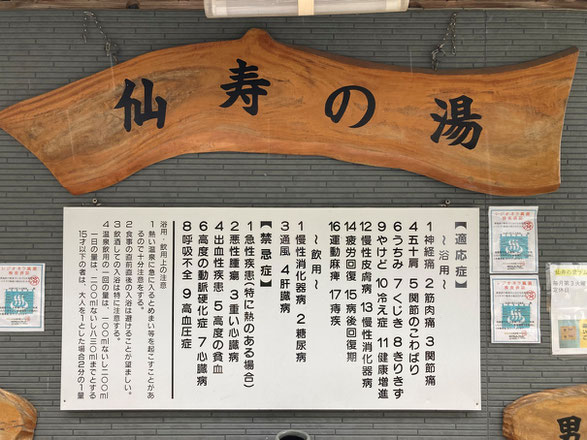 仙寿の湯
【適応症】
～浴用～
1 神経痛 2 筋肉痛 3 関節痛
4 五十肩 5 関節のこわばり
6 うちみ 7 くじき 8 きりきず
9 やけど 10 冷え症 11 健康増進
12 慢性皮膚病 13 慢性消化器病
14 疲労回復 15 病後回復期
16 運動麻痺 17 痔疾
～飲用～
1 慢性消化器病 2 糖尿病
3 通風 4 肝臓病
【禁忌症】
1 急性疾患(特に熱のある場合)
2 悪性腫瘍 3 重い心臓病
4 出血性疾患 5 高度の貧血
6 高度の動脈硬化症 7 心臓病
8 呼吸不全 9 高血圧症
浴用・飲用上の注意
1 熱い温泉に急に入るとめまい等を起こすことがあ
るので十分注意をすること。
2 食事の直前直後の入浴は避けることが望ましい。
3 飲酒しての入浴は特に注意する。
4 温泉飲用の一回の量は 一〇〇mlないし二〇〇ml
一日の量は、二〇〇mlないし八三〇mlまでとする
15才以下の者は、大人を1とした場合2分の1量
男